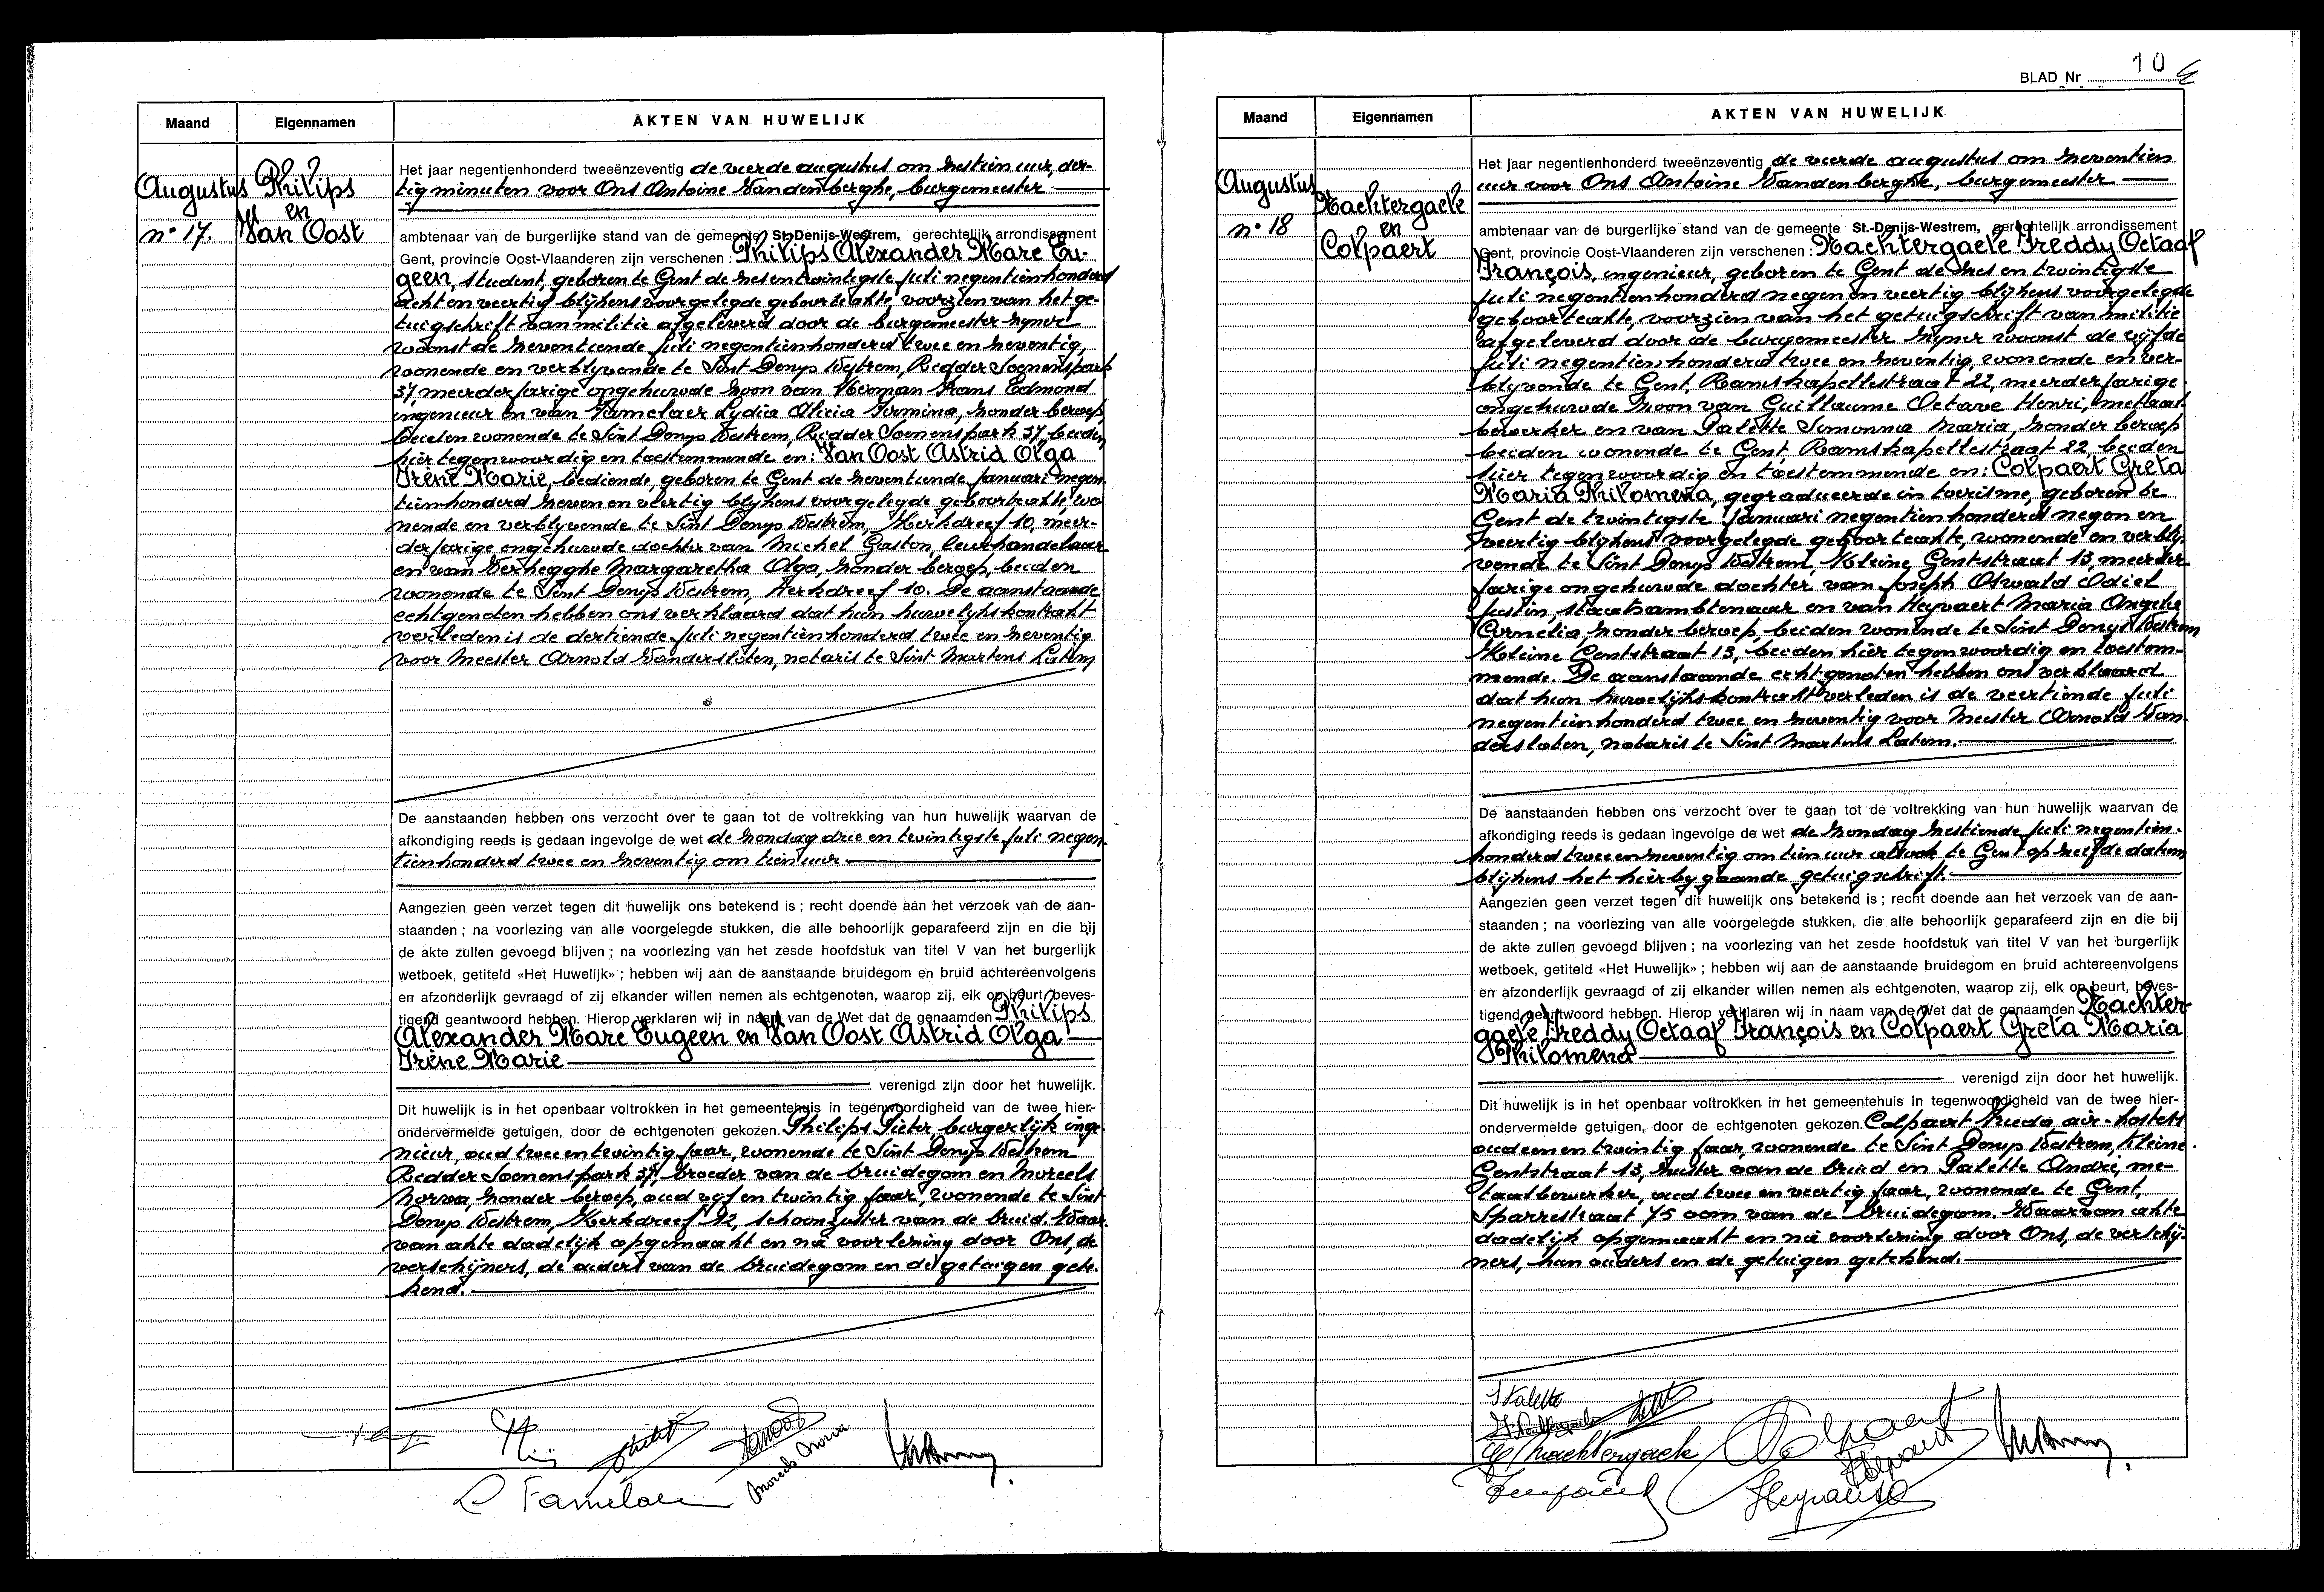 Maand
Eigennamen
AKTEN VAN HUWELIJK
Augustus
n° 17.
Philips
en
Van Oost
Het jaar negentienhonderd tweeënzeventig de vierde augustus om zestien uur, der-
tig minuten voor Ons Antoine Vandenberghe, burgemeester
ambtenaar van de burgerlijke stand van de gemeente St.-Denijs-Westrem, gerechtelijk arrondissement
Gent, provincie Oost-Vlaanderen zijn verschenen : Philips Alexander Marc Eu-
geen, student, geboren te Gent de zesentwintigste juli negentienhonderd
acht en veertig blijkens voorgelegde geboorteakte voorzien van het ge-
tuigschrift van militie afgeleverd door de burgemeester zijner
woonst de zeventiende juli negentienhonderd twee en zeventig,
wonende en verblijvende te Sint Denys Westrem, Ridder Soenenspark
37, meerderjarige ongehuwde zoon van Herman Frans Edmond
ingenieur en van Famelaer Lydia Alicia Firmina, zonder beroep,
beiden wonende te Sint Denys Westrem, Ridder Soenenspark 37, beiden
hier tegenwoordig en toestemmende en : Van Oost Astrid Olga
Irène Marie, bediende, geboren te Gent de zeventiende januari negen-
tienhonderd zeven en veertig blijkens voorgelegde geboorteakte, wo-
nende en verblijvende te Sint Denys Westrem, Kerkdreef 10, meer-
derjarige ongehuwde dochter van Michel Gaston, leurhandelaar
en van Verhegghe Margaretha Olga, zonder beroep, beiden
wonende te Sint Denys Westrem, Kerkdreef 10. De aanstaande
echtgenoten hebben ons verklaard dat hun huwelijkskontrakt
verleden is de dertiende juli negentienhonderd twee en zeventig
voor Meester Arnold Vandersloten, notaris te Sint Martens Latem
De aanstaanden hebben ons verzocht over te gaan tot de voltrekking van hun huwelijk waarvan de
afkondiging reeds is gedaan ingevolge de wet de zondag drie en twintigste juli negen-
tienhonderd twee en zeventig om tien uur
Aangezien geen verzet tegen dit huwelijk ons betekend is ; recht doende aan het verzoek van de aan-
staanden ; na voorlezing van alle voorgelegde stukken, die alle behoorlijk geparafeerd zijn en die bij
de akte zullen gevoegd blijven ; na voorlezing van het zesde hoofdstuk van titel V van het burgerlijk
wetboek, getiteld «Het Huwelijk» ; hebben wij aan de aanstaande bruidegom en bruid achtereenvolgens
en afzonderlijk gevraagd of zij elkander willen nemen als echtgenoten, waarop zij, elk op beurt, beves-
tigend geantwoord hebben. Hierop verklaren wij in naam van de Wet dat de genaamden Philips
Alexander Marc Eugeen en Van Oost Astrid Olga
Irène Marie
verenigd zijn door het huwelijk.
Dit huwelijk is in het openbaar voltrokken in het gemeentehuis in tegenwoordigheid van de twee hier-
ondervermelde getuigen, door de echtgenoten gekozen. Philips Pieter, burgerlijk inge-
nieur, oud twee en twintig jaar, wonende te Sint Denys Westrem
Ridder Soenenspark 37, broeder van de bruidegom en Moreels
Norva, zonder beroep, oud vijf en twintig jaar, wonende te Sint
Denys Westrem, Kerkdreef 92, schoonzuster van de bruid. Waar-
van akte dadelijk opgemaakt en na voorlezing door Ons, de
verschijners, de ouders van de bruidegom en de getuigen gete-
kend.
Moreels Norva
L Famelaer
BLAD Nr 10
Maand
Eigennamen
AKTEN VAN HUWELIJK
Augustus
n° 18
Nachtergaele
en
Colpaert
Het jaar negentienhonderd tweeënzeventig de vierde augustus om zeventien
uur voor Ons Antoine Vandenberghe, burgemeester
ambtenaar van de burgerlijke stand van de gemeente St.-Denijs-Westrem, gerechtelijk arrondissement
Gent, provincie Oost-Vlaanderen zijn verschenen : Nachtergaele Freddy Octaaf
François, ingenieur, geboren te Gent de zes en twintigste
juli negentienhonderd negen en veertig blijkens voorgelegde
geboorteakte, voorzien van het getuigschrift van militie
afgeleverd door de burgemeester zijner woonst de vijfde
juli negentienhonderd twee en zeventig, wonende en ver-
blijvende te Gent, Ramskapellestraat 22, meerderjarige
ongehuwde zoon van Guillaume Octave Henri, metaal-
bewerker en van Palette Simonna Maria, zonder beroep
beiden wonende te Gent Ramskapellestraat 22, beiden
hier tegenwoordig en toestemmende en : Colpaert Greta
Maria Philomena, gegradueerde in toerisme, geboren te
Gent de twintigste januari negentienhonderd negen en
veertig blijkens voorgelegde geboorteakte, wonende en verblij-
vende te Sint Denys Westrem, Kleine Gentstraat 13, meerder-
jarige ongehuwde dochter van Joseph Oswald Odiel
Justin, staatsambtenaar en van Heyvaert Maria Angela
Cornelia zonder beroep, beiden wonende te Sint Denys Westrem
Kleine Gentstraat 13, beiden hier tegenwoordig en toestem-
mende. De aanstaande echtgenoten hebben ons verklaard
dat hun huwelijkskontrakt verleden is de veertiende juli
negentienhonderd twee en zeventig voor Meester Arnold Van-
dersloten, notaris te Sint Martens Latem.
De aanstaanden hebben ons verzocht over te gaan tot de voltrekking van hun huwelijk waarvan de
afkondiging reeds is gedaan ingevolge de wet de zondag zestiende juli negentien-
honderd twee en zeventig om tien uur alsook te Gent op zelfde datum
blijkens het hierbygaande getuigschrift.
Aangezien geen verzet tegen dit huwelijk ons betekend is ; recht doende aan het verzoek van de aan-
staanden ; na voorlezing van alle voorgelegde stukken, die alle behoorlijk geparafeerd zijn en die bij
de akte zullen gevoegd blijven ; na voorlezing van het zesde hoofdstuk van titel V van het burgerlijk
wetboek, getiteld «Het Huwelijk» ; hebben wij aan de aanstaande bruidegom en bruid achtereenvolgens
en afzonderlijk gevraagd of zij elkander willen nemen als echtgenoten, waarop zij, elk op beurt, beves-
tigend geantwoord hebben. Hierop verklaren wij in naam van de Wet dat de genaamden Nachter-
gaele Freddy Octaaf François en Colpaert Greta Maria
Philomena
verenigd zijn door het huwelijk.
Dit huwelijk is in het openbaar voltrokken in het gemeentehuis in tegenwoordigheid van de twee hier-
ondervermelde getuigen, door de echtgenoten gekozen. Colpaert Frieda, air-hostess
oud een en twintig jaar, wonende te Sint Denys Westrem, Kleine
Gentstraat 13, zuster van de bruid en Palette André, me-
taalbewerker, oud twee en veertig jaar, wonende te Gent,
Sparrestraat 75 oom van de bruidegom. Waarvan akte
dadelijk opgemaakt en na voorlezing door Ons, de verschij-
ners, hun ouders en de getuigen getekend.
S Palette
Nachtergaele
Colpaert
Heyvaert